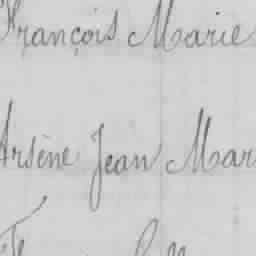 François Marie
Arsène Jean Mar